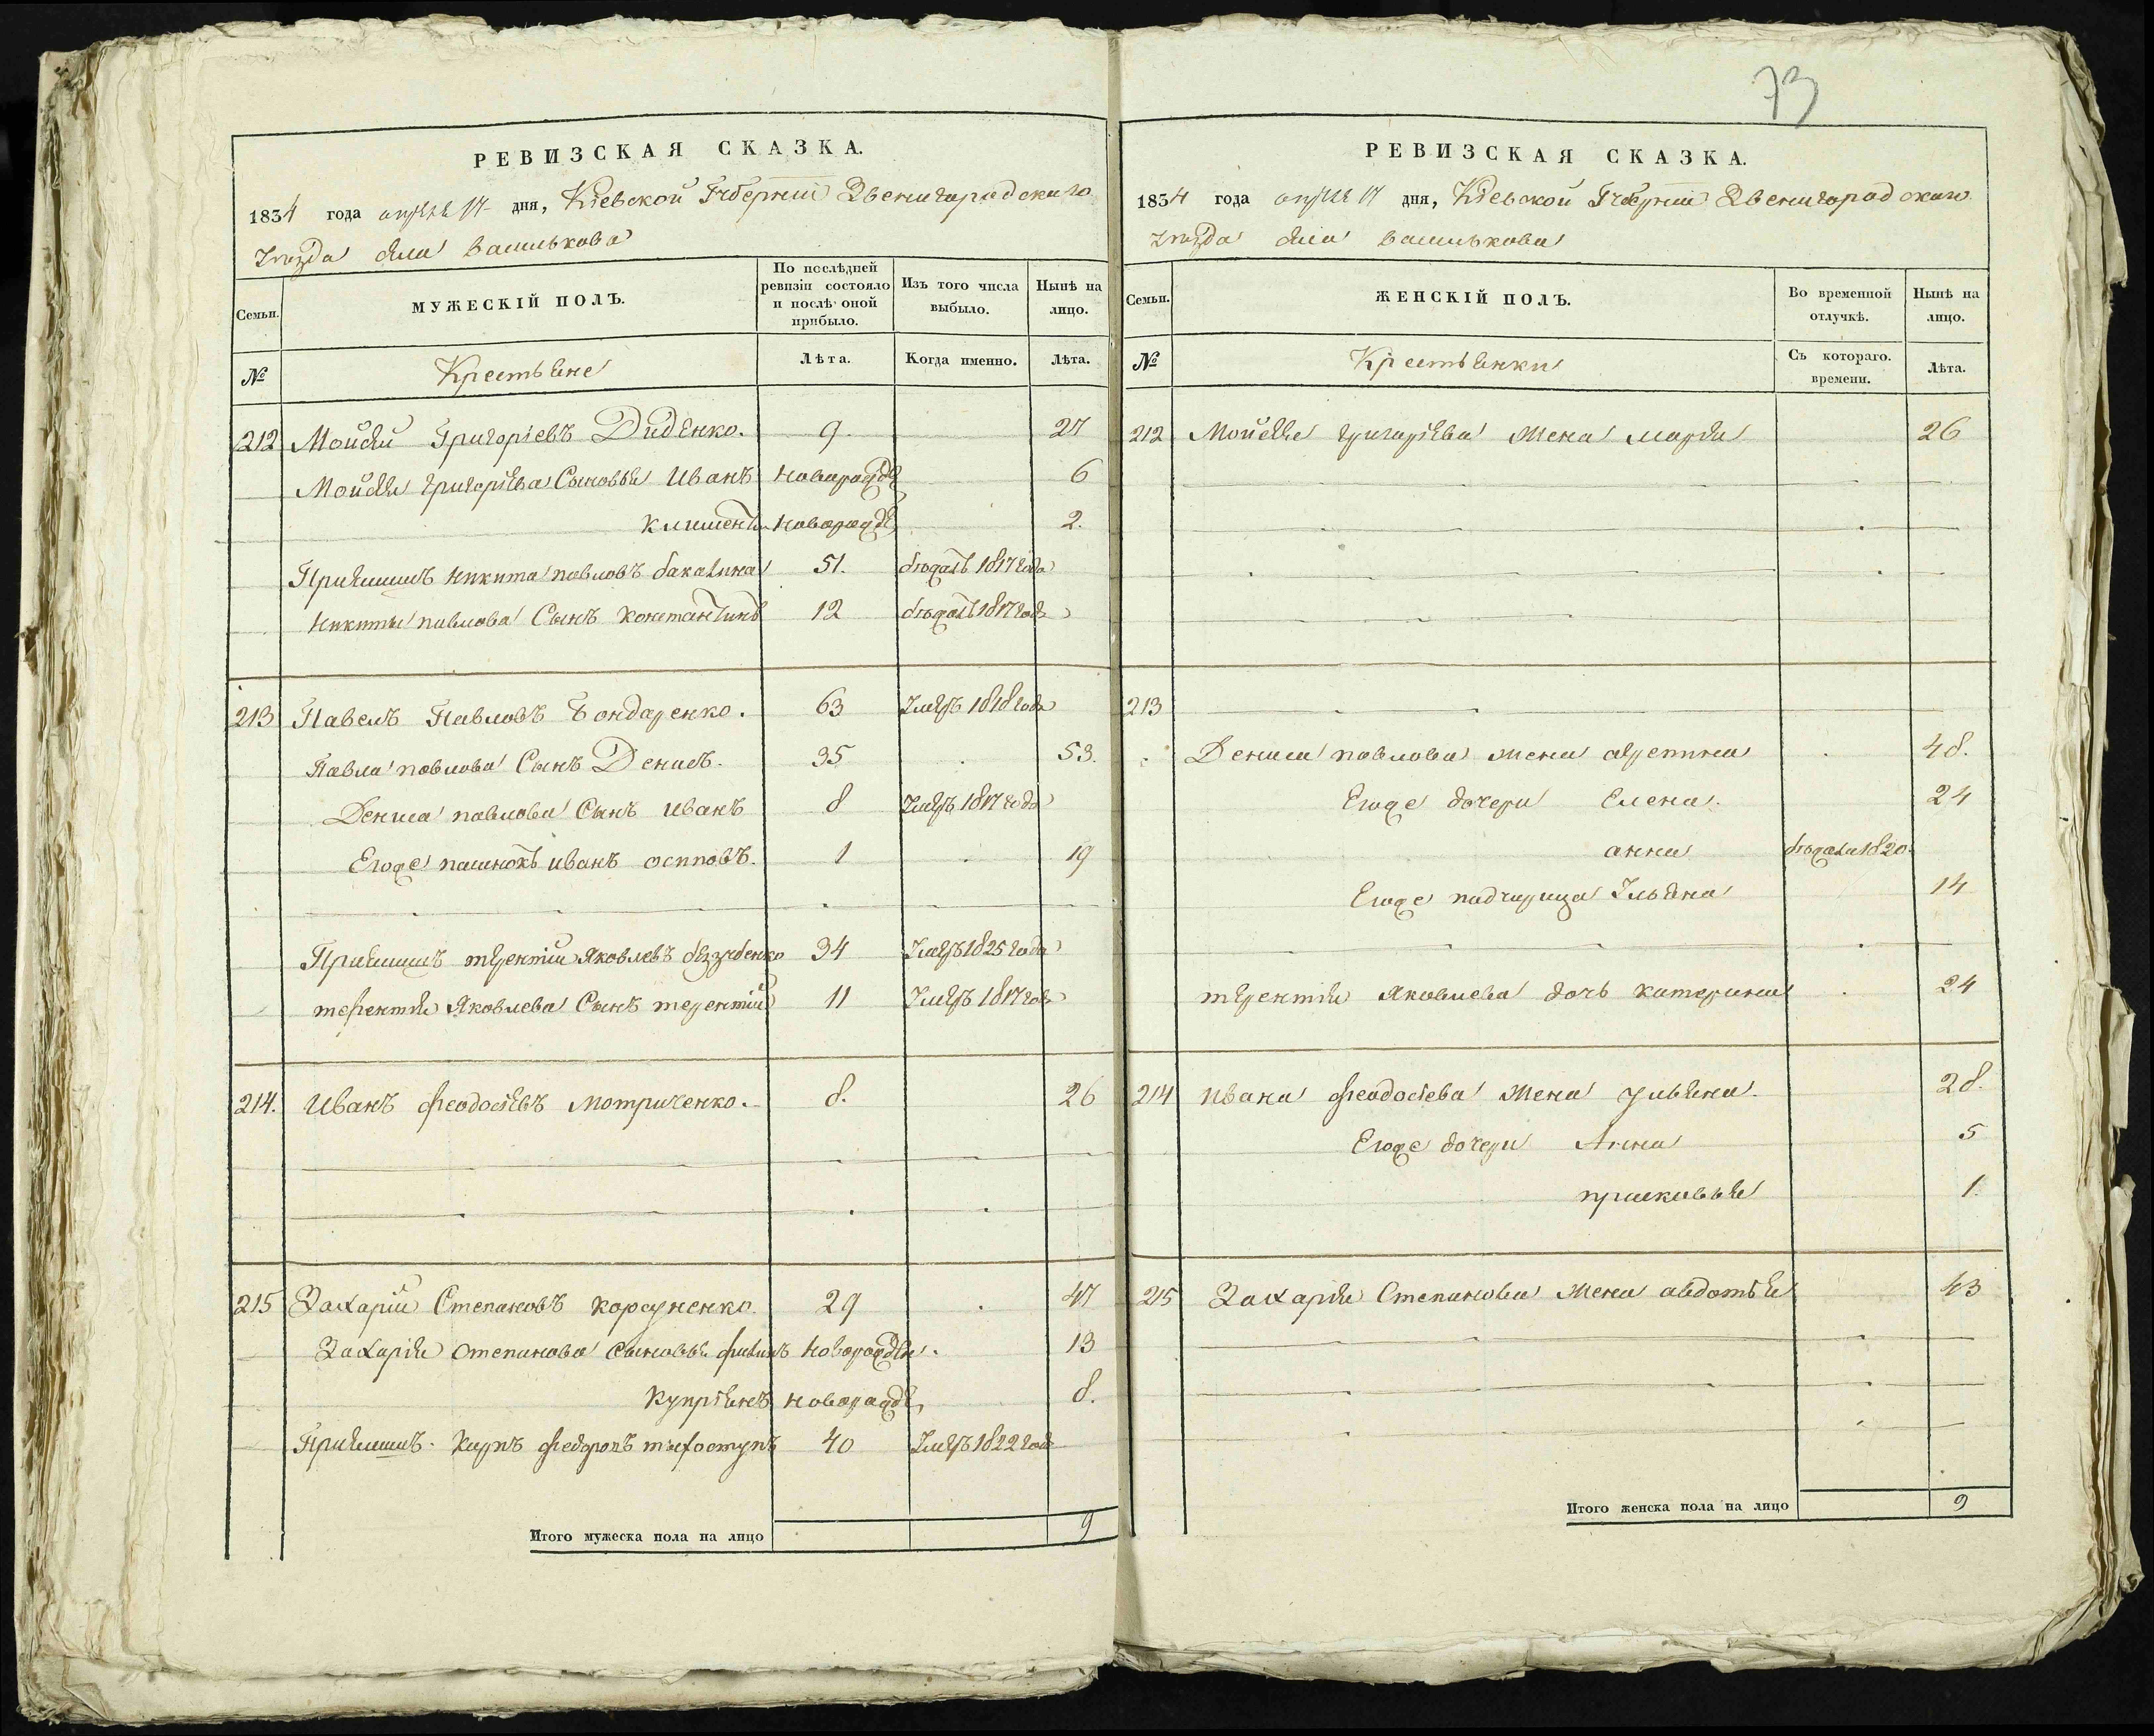 73
РЕВИЗСКАЯ СКАЗКА.
1834 года апреля 17 дня, Кіевской Губерніи Звенигородскаго
Уезда села Василькова
Семьи.
МУЖЕСКІЙ ПОЛЪ.
По послѣдней ревизіи состояло и послѣ оной прибыло.
Изъ того числа выбыло.
Нынѣ на лицо.
№
Крестьяне
Лѣта.
Когда именно.
Лѣта.
212 Мойсей Григоріевъ Диденко. 9. 27
Мойсея григоріева Сыновья Иванъ новорожде 6
Климентъ новорожде 2.
Приемышъ никита павловъ 51. бежалъ 1817 года
никиты павлова Сынъ константинъ 12 бежалъ 1817 года
213 Павелъ Павловъ Бондаренко. 63 Умеръ 1818 года
Павла павлова Сынъ Денисъ. 35 53.
Дениса павлова Сынъ иванъ 8 Умеръ 1817 года
Егоже пасинокъ иванъ осиповъ. 1 19
Приемышъ терентій Яковлевъ беззубенко 34 Умеръ 1825 года
терентія Яковлева Сынъ терентій 11 Умеръ 1817 года
214. Иванъ феодосіевъ мотриченко. 8. 26
215 Захарій Степановъ корсуненко. 29 47
Захарія Степанова Сыновья филипъ новорожден. 13
Купріянъ новорожде 8.
Приемышъ. Карпъ федоровъ 40 Умеръ 1822 года
Итого мужеска пола на лицо 9
РЕВИЗСКАЯ СКАЗКА.
1834 года апреля 17 дня, Кіевской Губерніи Звенигородскаго
Уезда села Василькова
Семьи.
ЖЕНСКІЙ ПОЛЪ.
Во временной отлучкѣ.
Нынѣ на лицо.
№
Крестьянки
Съ котораго. времени.
Лѣта.
212 Мойсея григоріева жена марія 26
213
Дениса павлова жена агрепина 48.
Егоже дочери Елена. 24
анна бежала 1820.
Егоже падчирица Ульяна 14
терентія Яковлева дочь катерина 24
214 ивана феодосіева жена ульяна. 28.
Егоже дочери Анна 5
прасковья 1.
215 Захарія Степанова жена авдотья 43
Итого женска пола на лицо 9